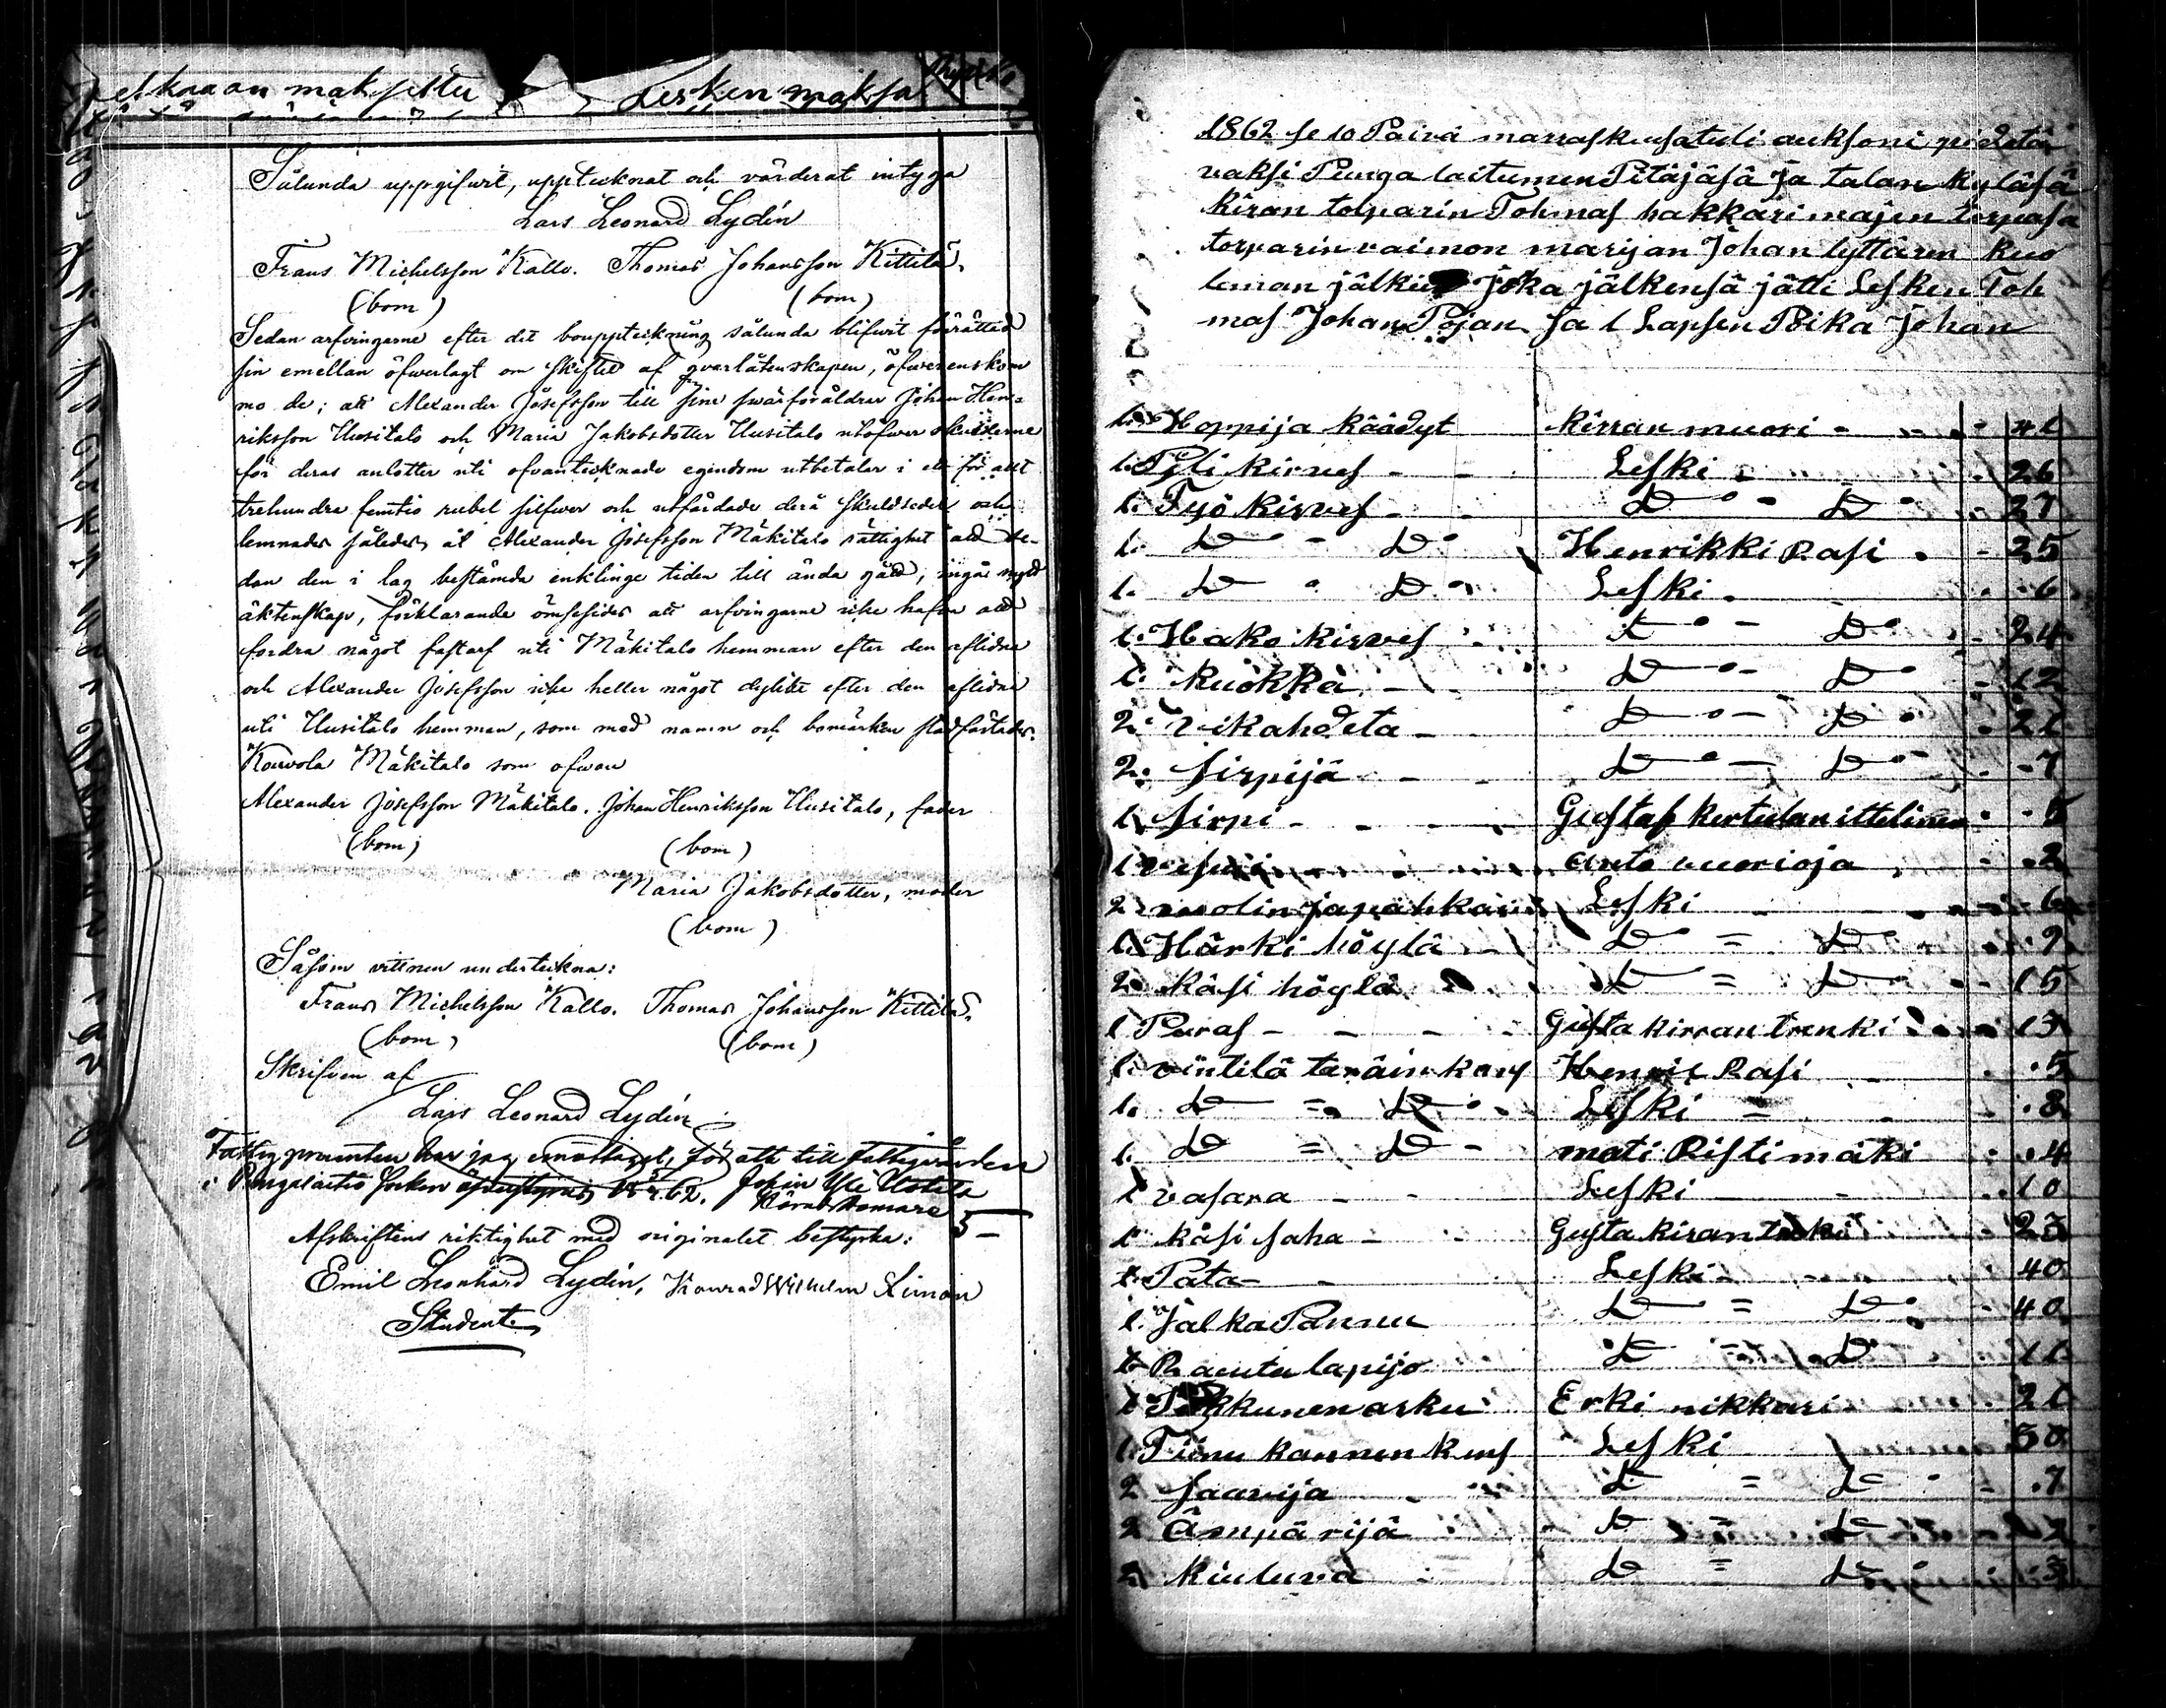 maksettu Lesken maksa
Sålunda uppgifwit, upptecknat och värderat intyga
Lars Leonard Lydén
Frans Michelsson Kallo. Thomas Johansson Kittilä.
(bom) (bom)
Sedan arfvingarne efter det bouppteckning sålunda blifwit förrättad
sin emellan öfwerlagt om skiftet af qvarlåtenskapen, öfwerenskom
mo de; att Alexander Josefsson till sine swärföräldrar Johan Hen-
riksson Uusitalo och Maria Jakobsdotter Uusitalo utöfwer skulderne
för deras anlotter uti ofvantecknade egendom utbetaler i ett för allt
trehundra femtio rubel silfwer och utfärdade derå skuldsedel och
lemnades således åt Alexander Josefsson Mäkitalo rättighet att se-
dan den i lag bestämda enklinge tiden till ända gått, ingå nytt
äktenskap, förklarande ömsesides att arfvingarne icke hafva att
fordra något fastarf uti Mäkitalo hemman efter den aflidna
och Alexander Josefsson icke heller något dylikt efter den aflidna
uti Uusitalo hemman, som med namn och bomärken stadfästades.
Kouvola Mäkitalo som ofwan
Alexander Josefsson Mäkitalo. Johan Henriksson Uusitalo, fader
(bom) (bom)
Maria Jakobsdotter, moder
(bom)
Såsom vittnen underteckna:
Frans Michelsson Kallo. Thomas Johansson Kittilä.
(bom) (bom)
Skrifven af
Lars Leonard Lydén
Fattigprocenten har jag emottagit, för att till fattigvården
i Pungalaitio Socken
5-
Afskriftens riktighet med originalet bestyrka:
Emil Leonhard Lydén, Konrad Wilhelm Limón
Student
1862 se 10 Päivä marraskusa tuli auksoni pidetä
vaksi Punga laitumen Pitäjäsä ja talan kyläsä
kiran torparin Tohmas hakkäri majen torpasa
torparin vaimon marijan Johan tyttären kuo
leman jälkin joka jälkensä jätti Lesken Toh
mas Johan Pojan ja 1 Lapsen Poika Johan
1. Hoppija käädyt kirran muori - 41
1. Pili kirves - - Leski - 26
1. Työ kirves - - D - D 27
1. D - D Henrikki Rasi - 25
1. D - D Leski - 6
1. Hako kirves D - D 24
1. kuokka - D - D 12
2. vikahdeta - D - D 21
2. sirpijä - - D - D 7
1. sirpi - - - Gustaf kertulan ittelinen 5
1 anto vuorioja 2
2 Leski 6
1. Härki höylä - D = D 9
2. käsi höylä D = D 15
1 Puras - - - Gusta kirran trenki 13
1. vintilä teräin kans Henric Rasi 5
1. D = D Leski = 8
1. D = D - mati Ristimäki 4
1 vasara - - Leski - 10
1 käsi saha - Gusta kiran 23
1. Pata - Leski - 40
1. Jalka Pannu D = D 40
1. Rauta lapijo D = D 11
1 Erki nikkari 21
1. Tiinu kannen kans Leski 50
2 saavija - D = D 7
2 Ämpärijä D = D
2 kiuluva D = D 3